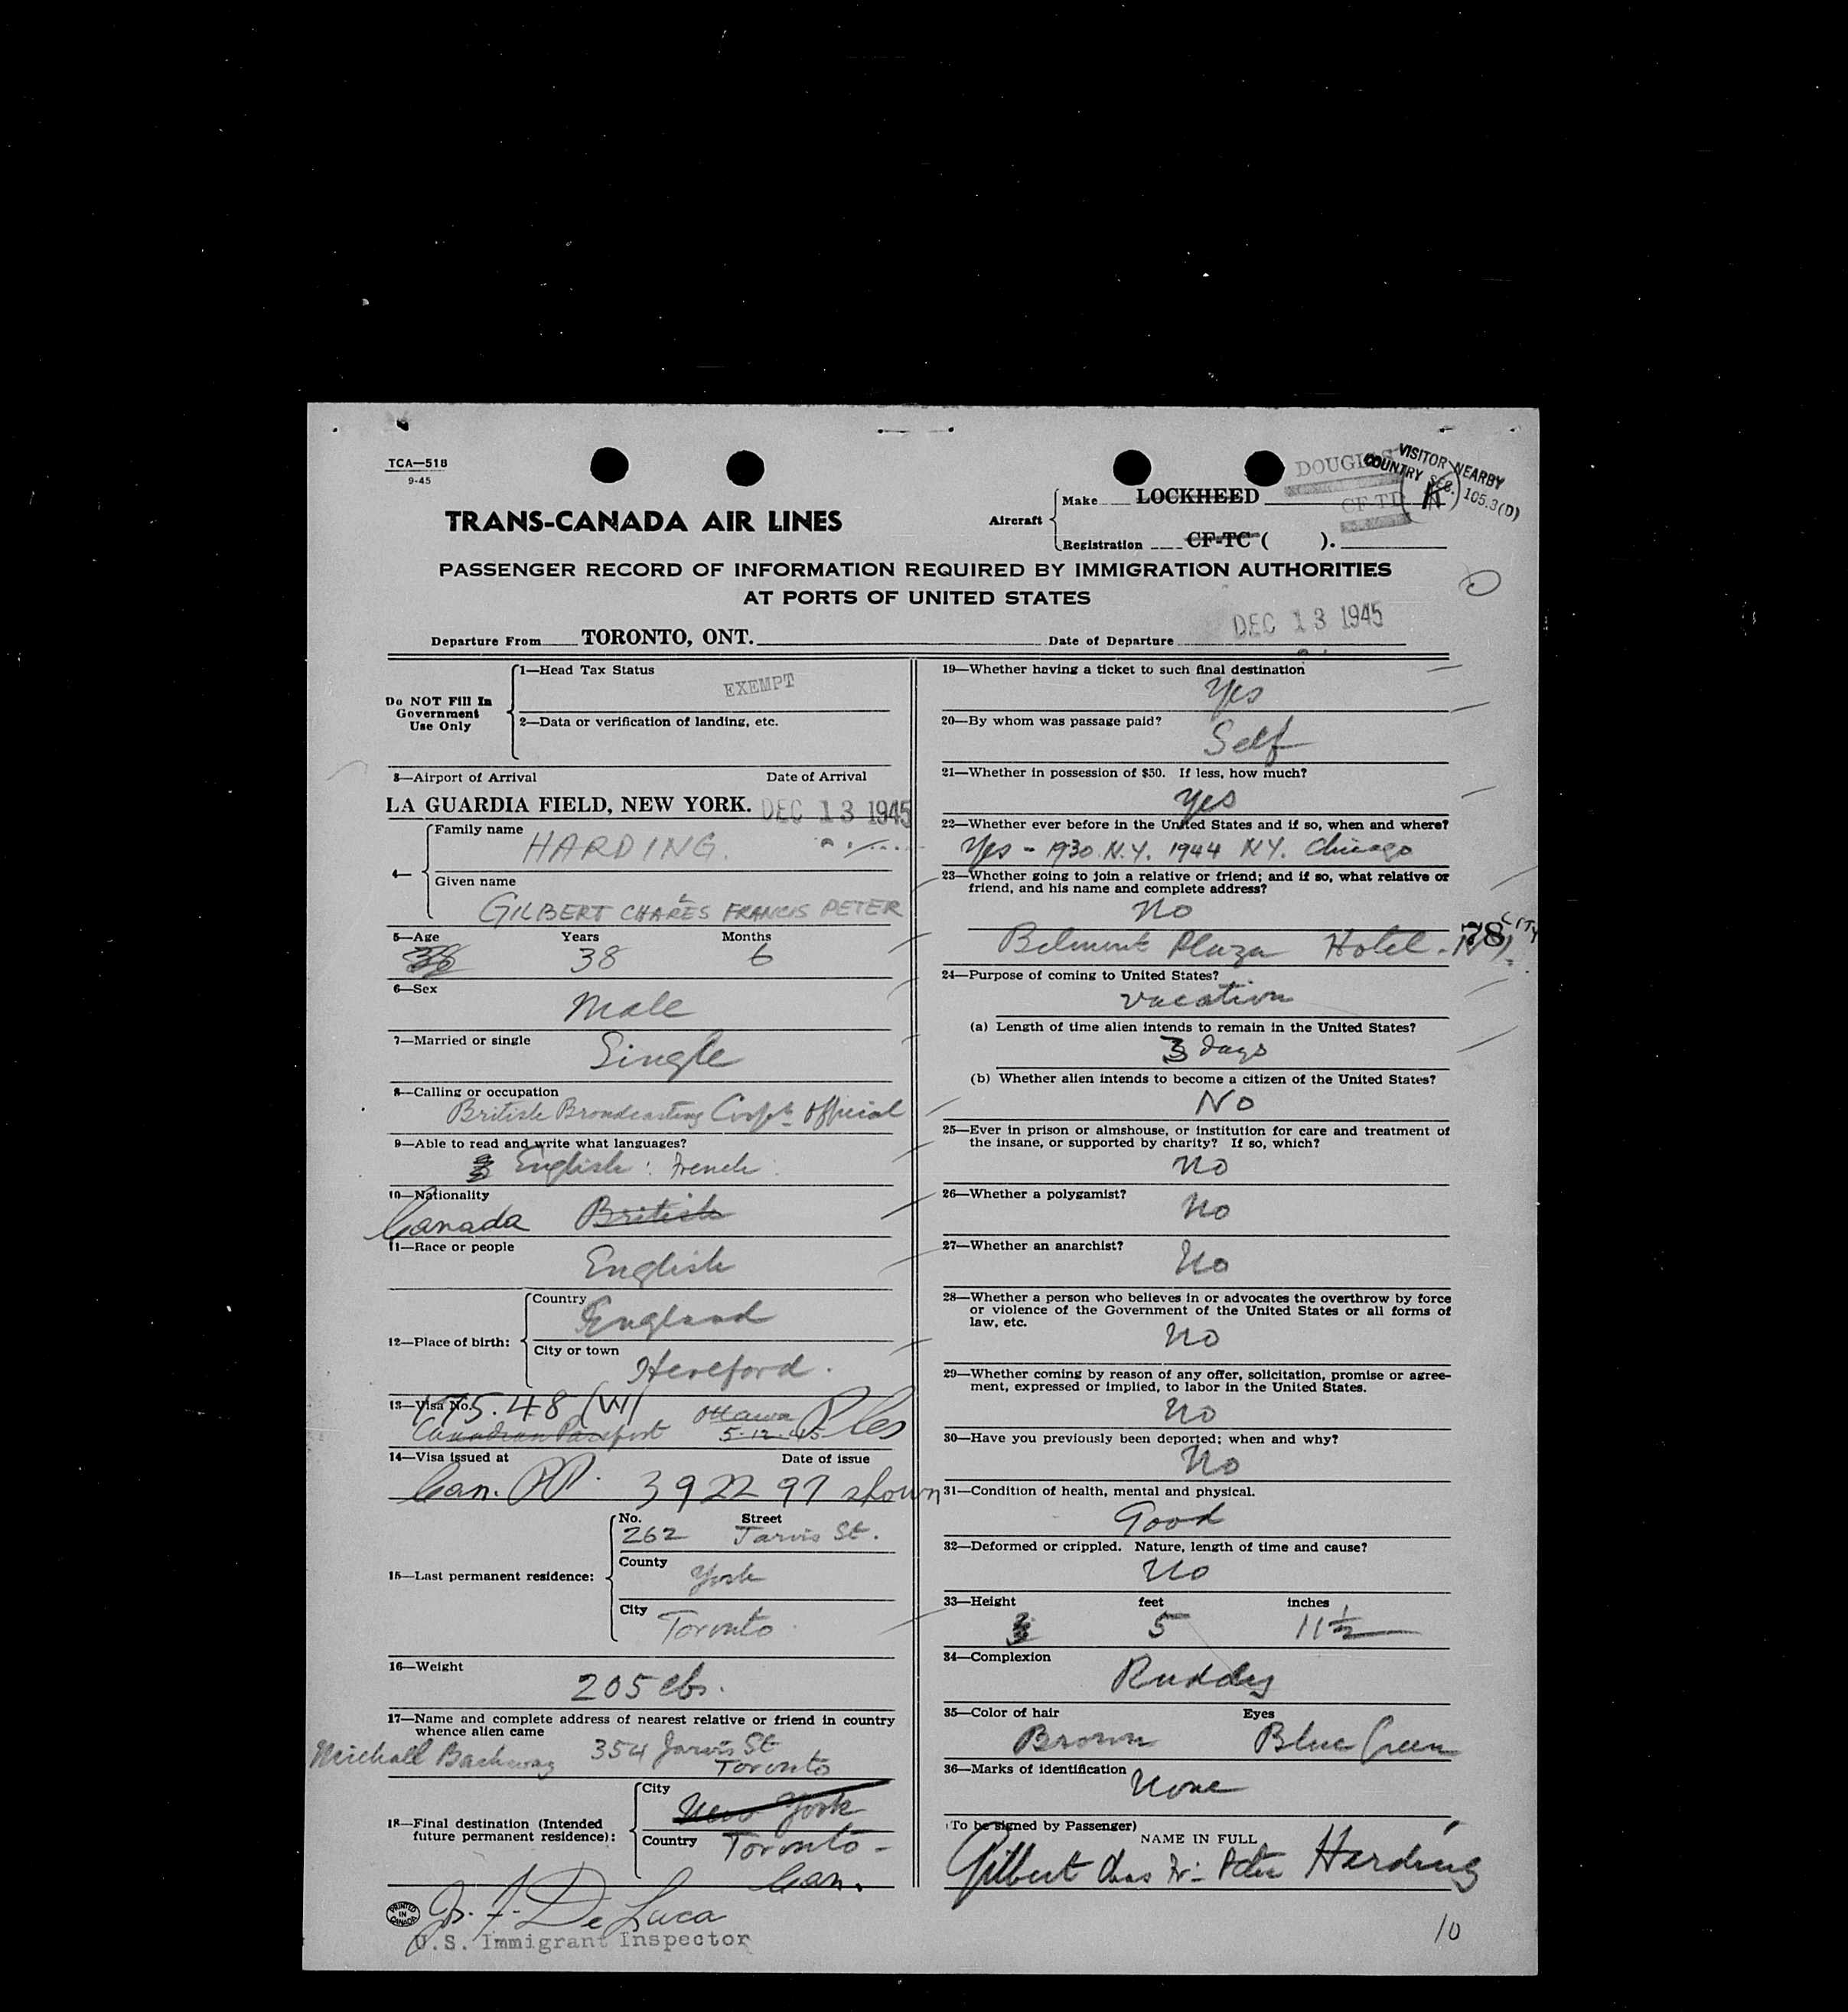 TCA—518
9-45
TRANS-CANADA AIR LINES
Aircraft
Make LOCKHEED
DOUGLAS
Registration CF-TC ( ).
CF-TD
VISITOR NEARBY
COUNTRY SEC. 105.3(D)
PASSENGER RECORD OF INFORMATION REQUIRED BY IMMIGRATION AUTHORITIES
AT PORTS OF UNITED STATES
Departure From TORONTO, ONT. Date of Departure DEC 13 1945
Do NOT Fill In
Government
Use Only
1—Head Tax Status
EXEMPT
2—Data or verification of landing, etc.
3—Airport of Arrival Date of Arrival
LA GUARDIA FIELD, NEW YORK. DEC 13 1945
4—
Family name
HARDING.
Given name
GILBERT CHARLES FRANCIS PETER
5—Age Years Months
38 38 6
6—Sex
Male
7—Married or single
Single
8—Calling or occupation
British Broadcasting Corpn Official
9—Able to read and write what languages?
English : French
10—Nationality
Canada British
11—Race or people
English
12—Place of birth:
Country
England
City or town
Hereford.
13—Visa No.
175.48 (W)
Canadian Passport Ottawa 5.12.45
14—Visa issued at Date of issue
Can. PP. 392297 shown
15—Last permanent residence:
No. Street
262 Jarvis St.
County
York
City
Toronto
16—Weight
205 lbs.
17—Name and complete address of nearest relative or friend in country
whence alien came
354 Jarvis St
Toronto
18—Final destination (Intended
future permanent residence):
City
New York
Country Toronto -
Can.
PRINTED
IN
CANADA
De Luca
U.S. Immigrant Inspector
19—Whether having a ticket to such final destination
Yes
20—By whom was passage paid?
Self
21—Whether in possession of $50. If less, how much?
Yes
22—Whether ever before in the United States and if so, when and where?
Yes - 1930 N.Y. 1944 N.Y. Chicago
23—Whether going to join a relative or friend; and if so, what relative or
friend, and his name and complete address?
No
78 CITY
Belmont Plaza Hotel - N.Y.
24—Purpose of coming to United States?
Vacation
(a) Length of time alien intends to remain in the United States?
3 days
(b) Whether alien intends to become a citizen of the United States?
No
25—Ever in prison or almshouse, or institution for care and treatment of
the insane, or supported by charity? If so, which?
No
26—Whether a polygamist?
No
27—Whether an anarchist?
No
28—Whether a person who believes in or advocates the overthrow by force
or violence of the Government of the United States or all forms of
law, etc.
No
29—Whether coming by reason of any offer, solicitation, promise or agree-
ment, expressed or implied, to labor in the United States.
No
30—Have you previously been deported; when and why?
No
31—Condition of health, mental and physical.
Good
32—Deformed or crippled. Nature, length of time and cause?
No
33—Height feet inches
5 11 1/2
34—Complexion
Ruddy
35—Color of hair Eyes
Brown Blue Green
36—Marks of identification
None
(To be signed by Passenger)
NAME IN FULL
Gilbert Chas Fr: Peter Harding
10